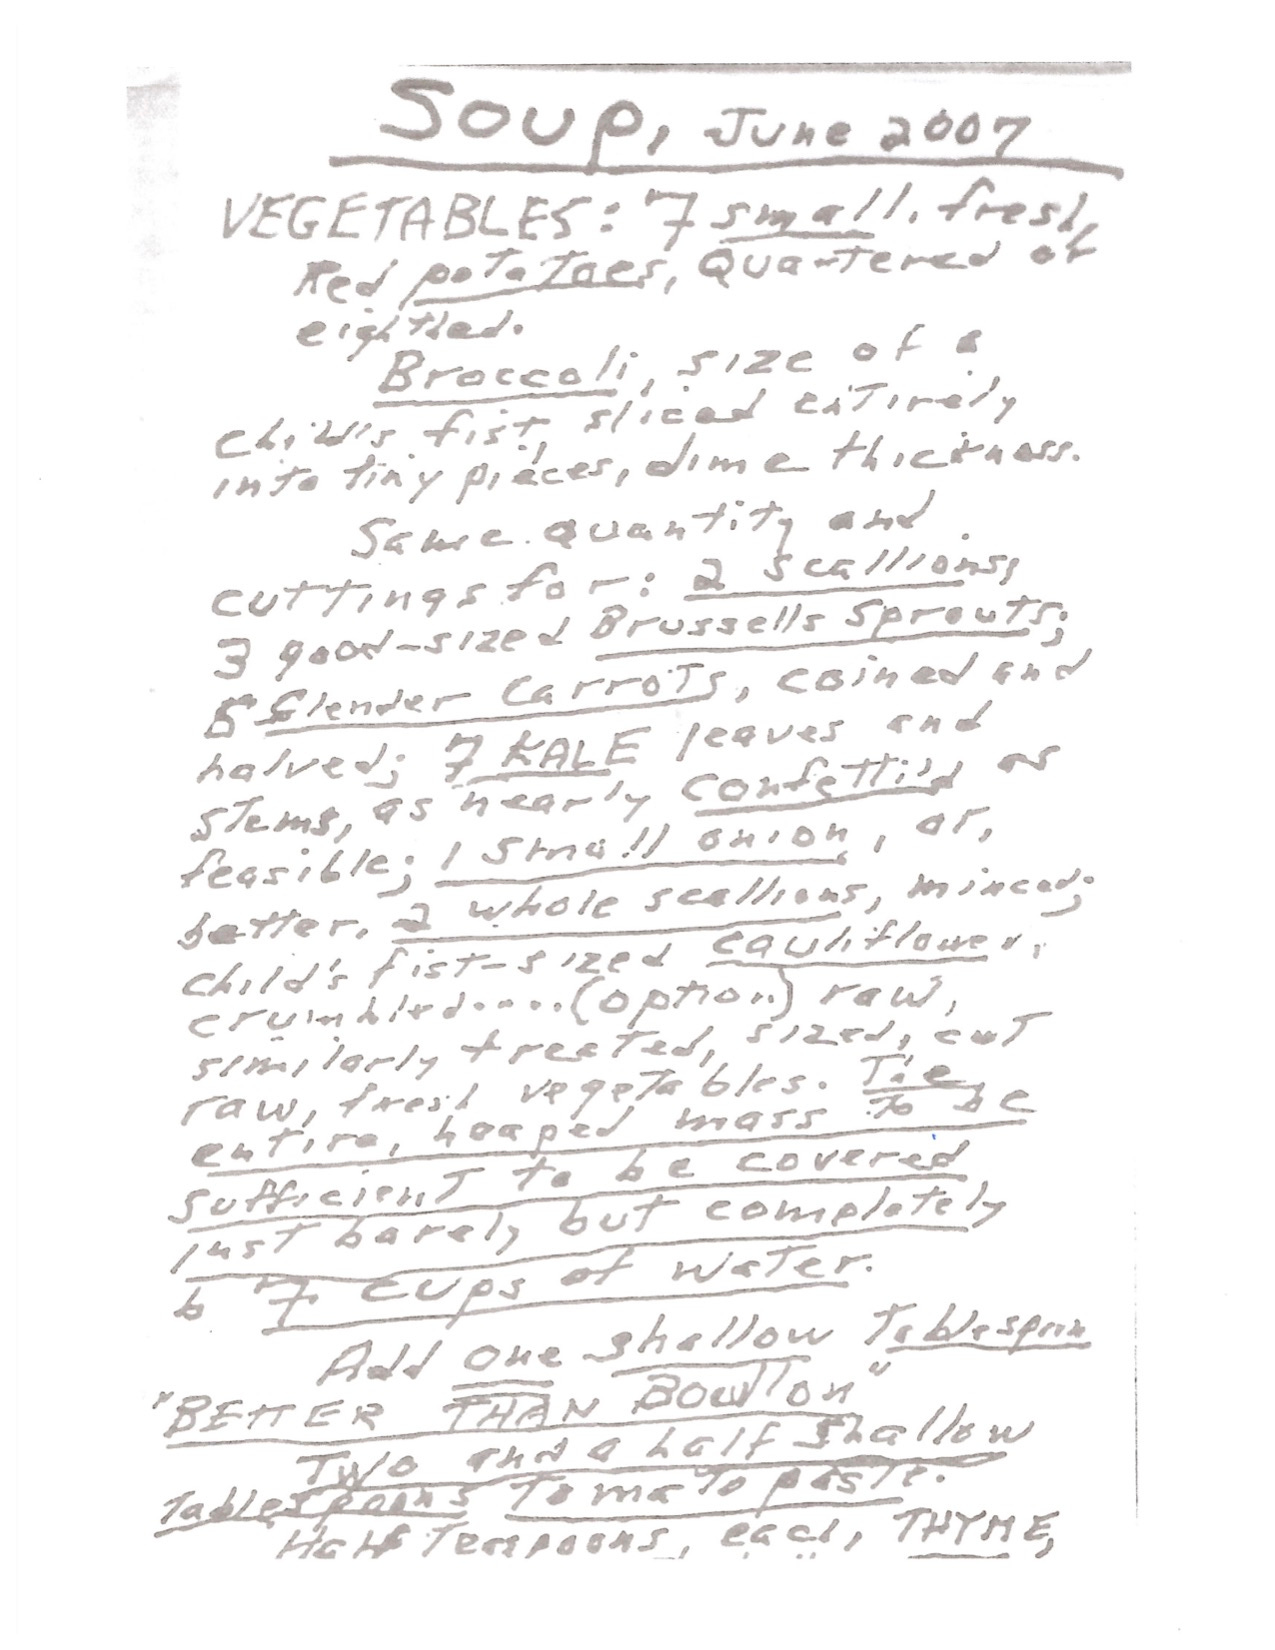 Soup, June 2007
VEGETABLES: 7 small, fresh,
Red potatoes, Quartered or
eighthed.
Broccoli, size of a
child's fist, sliced entirely
into tiny pieces, dime thickness.
Same quantity and
cuttings for: 2 scallions;
3 good-sized Brussells Sprouts;
5 slender carrots, coined and
halved; 7 KALE leaves and
stems, as nearly confetti'd as
feasible; 1 small onion, or,
better, 2 whole scallions, minced;
child's fist-sized cauliflower,
crumbled.... (option) raw,
similarly treated, sized, cut
raw, fresh vegetables. The
entire, heaped mass to be
sufficient to be covered
just barely but completely
b 7 cups of water.
Add one shallow tablespoon
"BETTER THAN Bouillon"
Two and a half shallow
tablespoons Tomato paste.
Half Teaspoons, each, THYME,